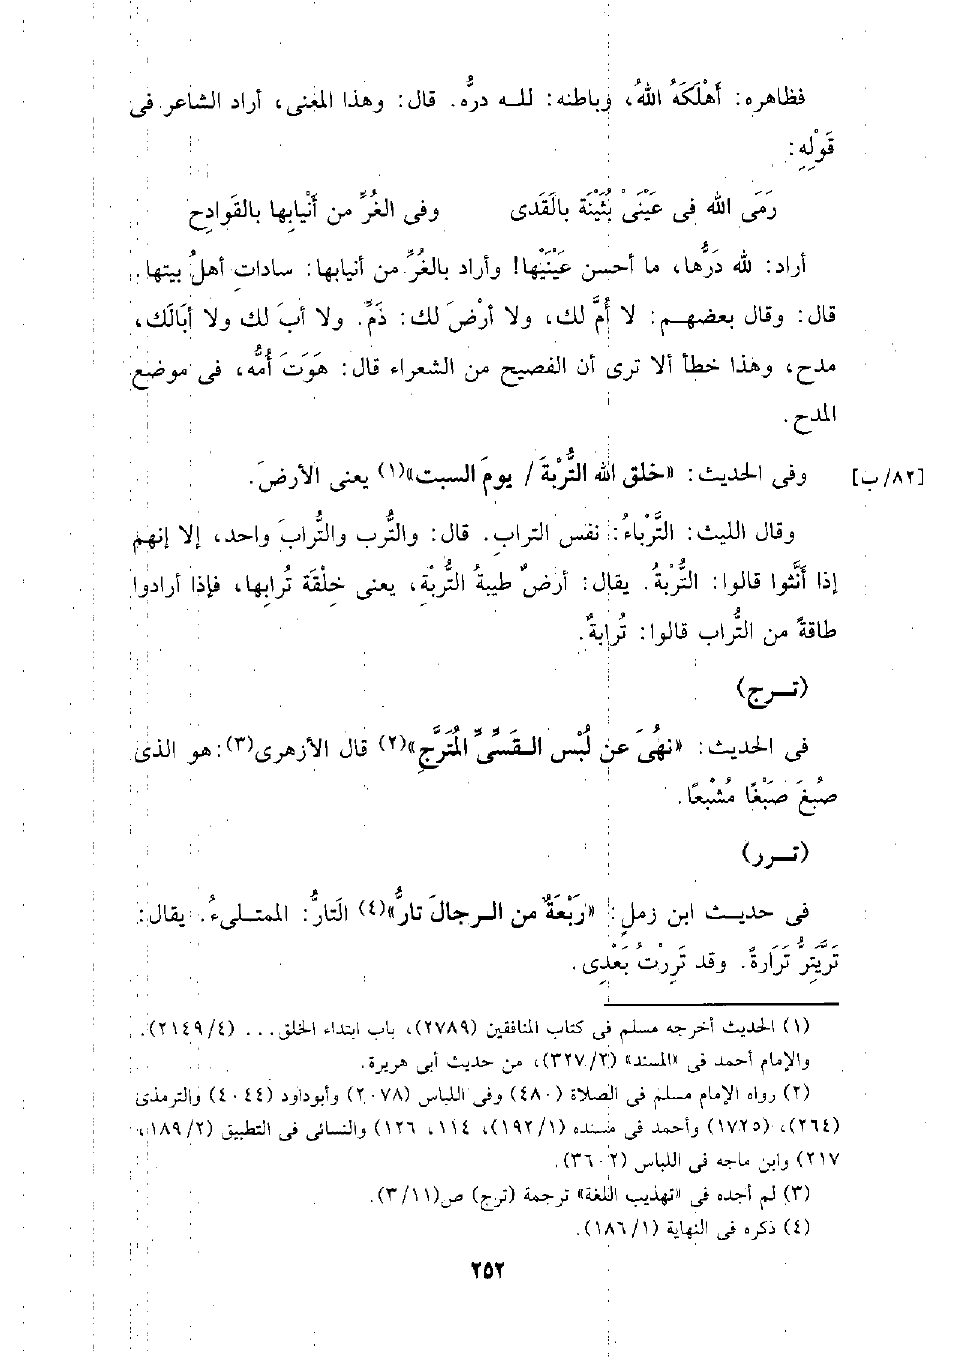 فظاهره: أَهْلَكَهُ اللهُ، وباطنه: للـه درُّه. قال: وهذا المعنى، أراد الشاعر فى
قَوْلِهِ:
رَمَى الله فى عَيْنَىْ بُثَيْنَة بالقَذَى وفى الغُرِّ من أَنْيابِها بالقَوادِح
أراد: لله دَرُّها، ما أحسن عَيْنَيْها! وأراد بالغُرِّ من أنيابها: سادات أهلُ بيتها.
قال: وقال بعضهـم: لا أُمَّ لك، ولا أرْضَ لك: ذَمٌّ. ولا أبَ لك ولا أبَالَك،
مدح، وهذا خطأ ألا ترى أن الفصيح من الشعراء قال: هَوَتَ أُمُّه، فى موضع
المدح.
[٨٢/ب] وفى الحديث: «خلق الله التُّرْبةَ / يومَ السبت»(١) يعنى الأرضَ.
وقال الليث: التَّرْباءُ: نفس التراب. قال: والتُّرب والتُّرابَ واحد، إلا إنهم
إذا أَنَّثوا قالوا: التُّرْبةُ. يقال: أرضٌ طيبةُ التُّرْبِة، يعنى خِلْقَة تُرابِها، فإذا أرادوا
طاقةً من التُّراب قالوا: تُرابةٌ.
(تـرج)
فى الحديث: «نهُىَ عن لُبْس القَسِّىِّ المُتَرَّجِ»(٢) قال الأزهرى(٣): هو الذى
صُبغَ صَبْغًا مُشْبعًا.
(تـرر)
فى حديـث ابن زملٍ: «رَبْعَةٌ من الـرجالَ تارُّ»(٤) التَارُّ: الممتـلىءُ. يقال:
تَرَّيَتِرُّ تَرَارةً. وقد تَرِرْتُ بَعْدِى.
(١) الحديث أخرجه مسلم فى كتاب المنافقين (٢٧٨٩)، باب ابتداء الخلق... (٢١٤٩/٤).
والإمام أحمد فى «المسند» (٣٢٧/٢)، من حديث أبى هريرة.
(٢) رواه الإمام مسلم فى الصلاة (٤٨٠) وفى اللباس (٢٠٧٨) وأبوداود (٤٠٤٤) والترمذى
(٢٦٤)، (١٧٢٥) وأحمد فى مسنده (١٩٢/١)، ١١٤، ١٢٦) والنسائى فى التطبيق (١٨٩/٢،
٢١٧) وابن ماجه فى اللباس (٣٦٠٢).
(٣) لم أجده فى «تهذيب اللغة» ترجمة (ترج) ص(٣/١١).
(٤) ذكره فى النهاية (١٨٦/١).
٢٥٢